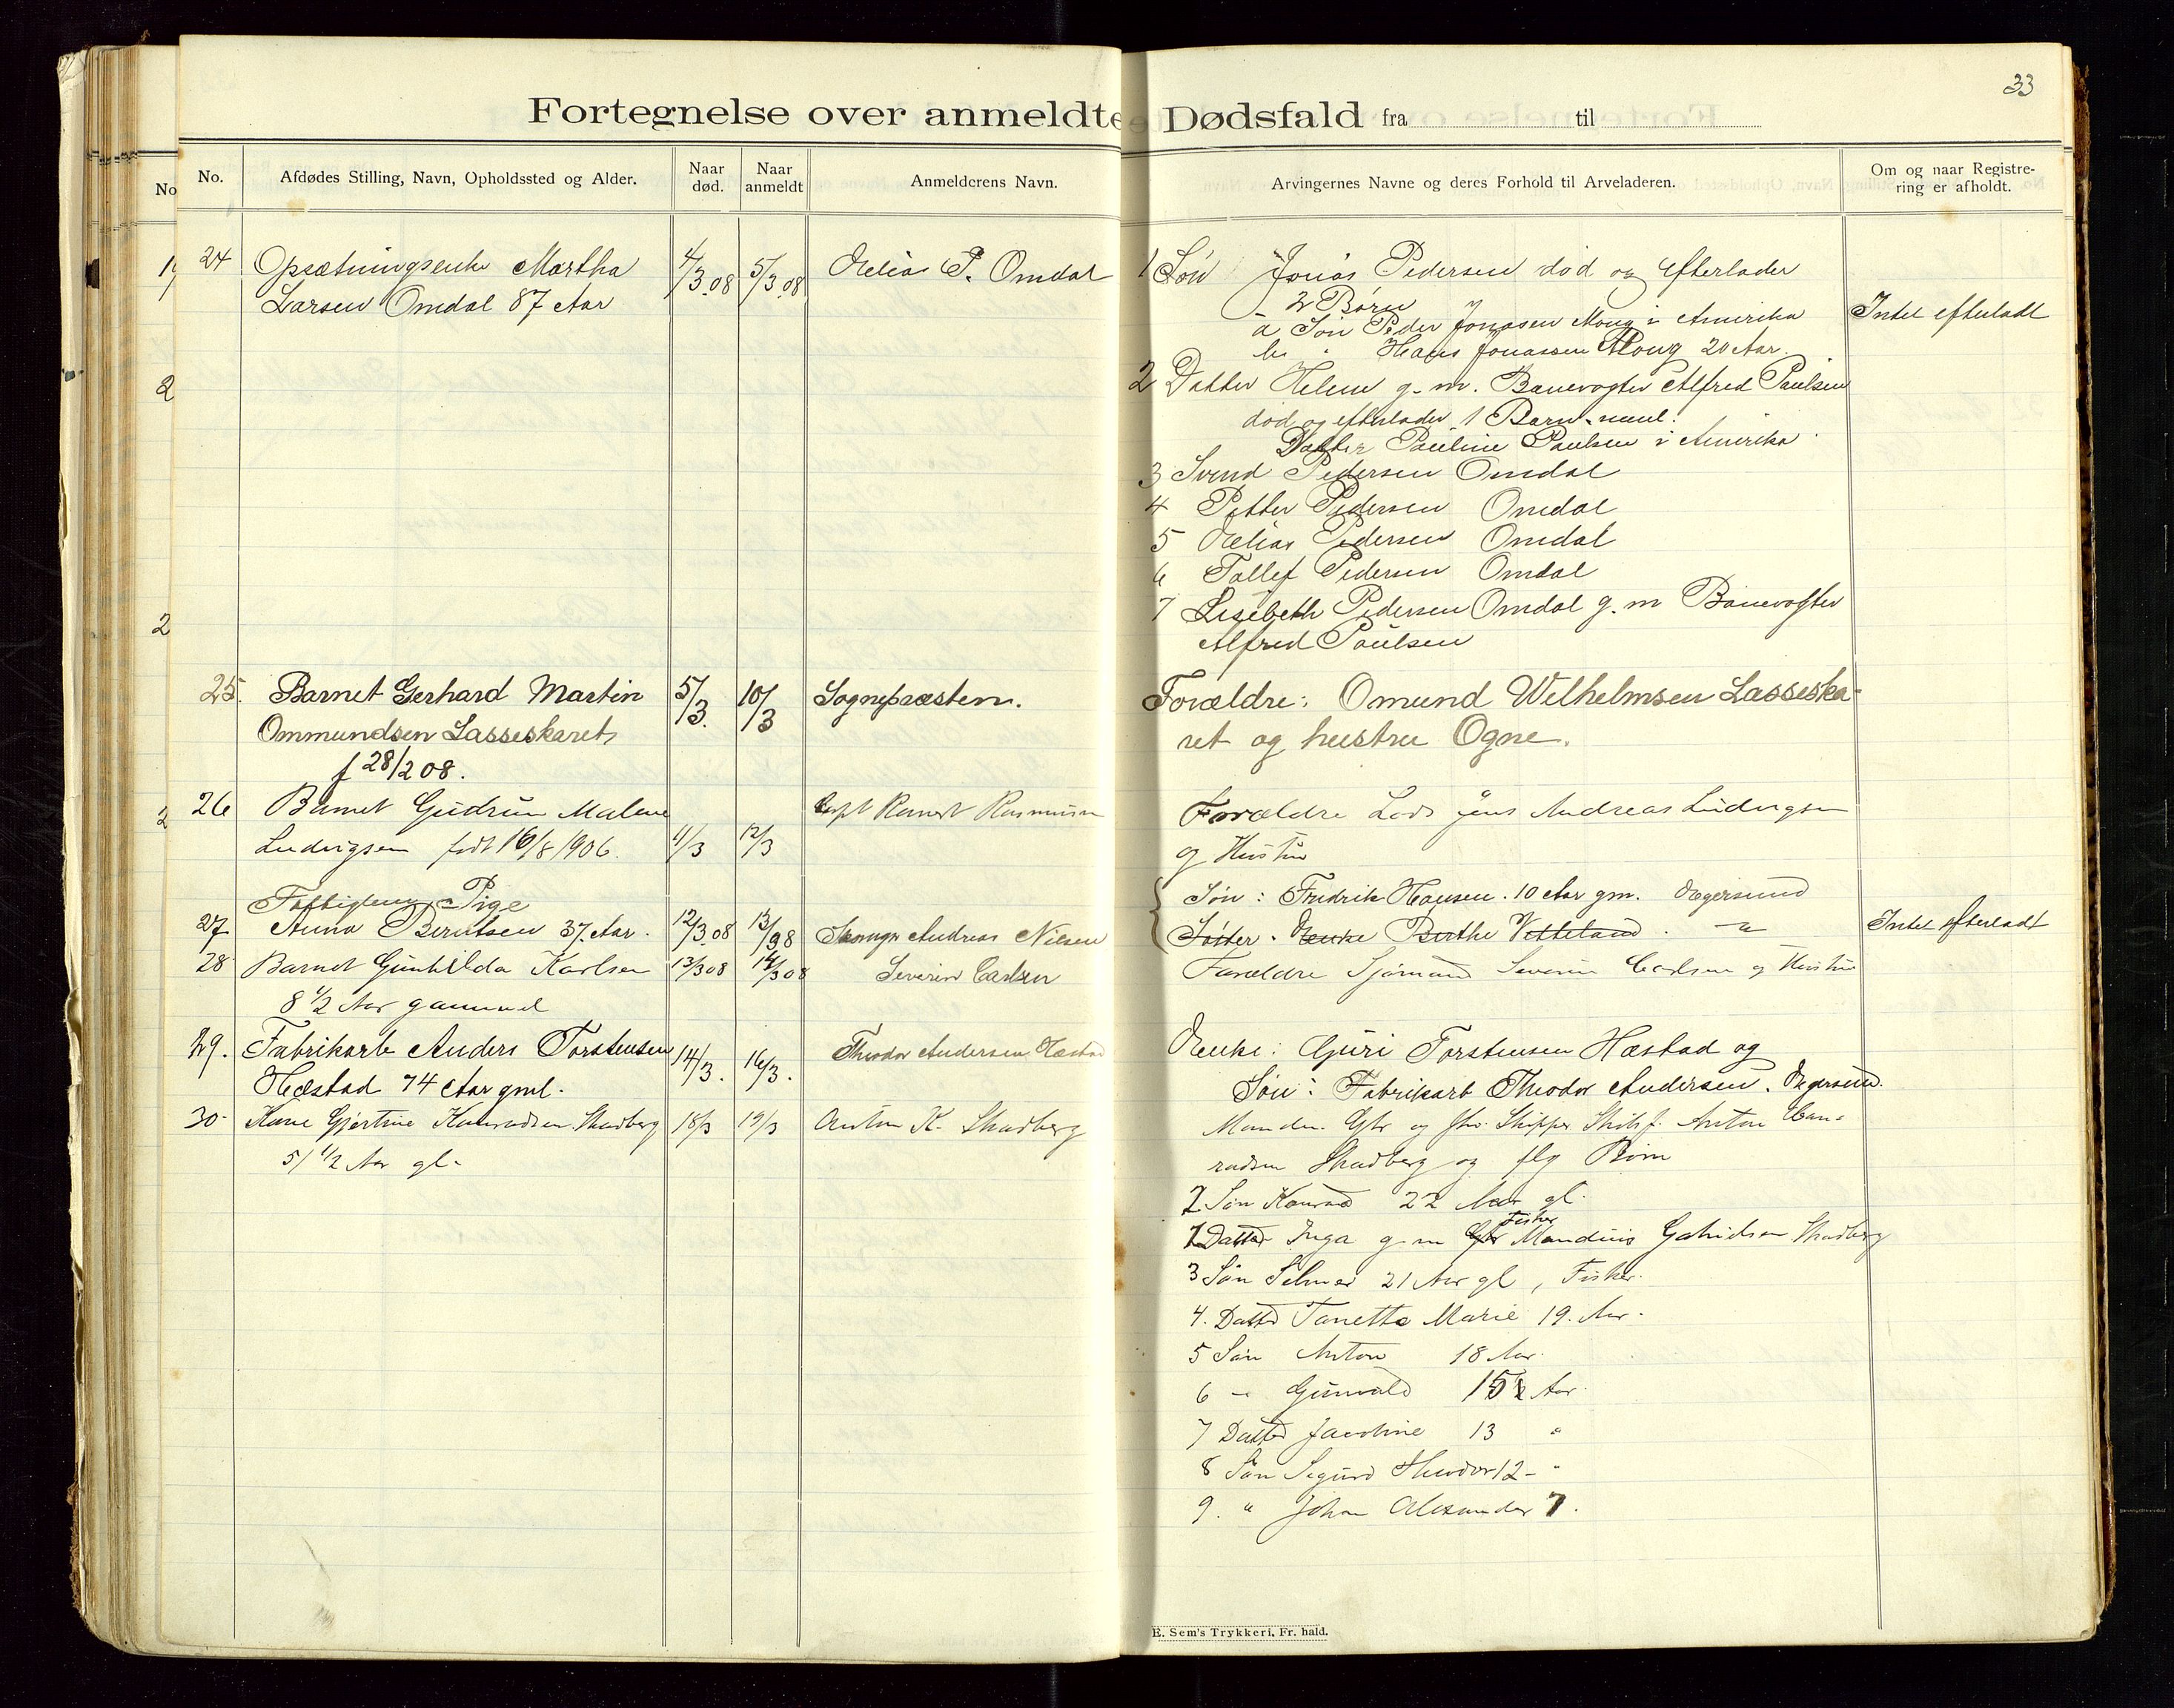 33
Fortegnelse over anmeldte Dødsfald fra til
No
No.
Afdødes Stilling, Navn, Opholdssted og Alder.
Naar død.
Naar anmeldt
Anmelderens Navn.
Arvingernes Navne og deres Forhold til Arveladeren.
Om og naar Registrering er afholdt.
24 Opsætningsenke Martha 4/3.08 5/3.08 Aelias P. Omdal
Larsen Omdal 87 Aar
1 Søn Jonas Pedersen død og efterlader
2 Børn
a Søn Peder Jonasen Moug i Amerika
b " Hans Jonassen Moug 20 Aar.
Intet efterladt
2 Datter Helene g. m. Banevogter Alfred Paulsen
død og efterlader 1 Barn neml.
Datter Pauline Paulsen i Amerika
3 Svend Pedersen Omdal
4 Petter Pedersen Omdal
5 Aelias Pedersen Omdal
6 Tollef Pedersen Omdal
7 Lisebeth Pedersen Omdal g. m Banevogter
Alfred Paulsen
25. Barnet Gerhard Martin 5/3. 10/3 Sognepræsten.
Ommundsen Lasseskaret
f 28/2 08.
Forældre: Omund Wilhelmsen Lasseska-
ret og hustru Ogne.
26 Barnet Gudrun Malene Rasmussen
Ludvigsen født 16/8 1906. 11/3 12/3
Forældre Lods Jens Andreas Ludvigsen
og Hustru
Pige
27 Anna Berntsen 37. Aar. 12/3.08 13/3 98 Andreas Nilsen
Søn: Fredrik Hansen. 10 Aar gm. Egersund
Søster. Enke Berthe Vetteland. - " -
Intet efterladt
28 Barnet Gunhilda Karlsen 13/3 08 14/3 08 Severin Carlsen
8 1/2 Aar gammel
Forældre Sjømand Severin Carlsen og Hustru
29. Fabrikarb Anders Torstensen 14/3. 16/3. Theodor Andersen Hæstad
Hæstad 74 Aar gml.
Enke: Guri Torstensen Hæstad og
Søn: Fabrikarb Theodor Andersen. Egersund.
30 Kone Gjertine Konradsen Skadberg 18/3 19/3 Anton K. Skadberg
51 1/2 Aar gl.
Manden. Gbr og Skipper Anton Con-
radsen Skadberg og flg Børn
2 Søn Konrad 22 Aar gl.
Fisker
1 Datter Inga g m Gbr Mandius Gabrielsen Skadberg
3 Søn Selmer 21 Aar gl, Fisker.
4. Datter Tanette Marie 19. Aar.
5 Søn Anton 18 Aar.
6 - " Gunvald 15 1/2 Aar.
7 Datter Jacobine 13 "
8 Søn Sigurd Theodor 12 - "
9. " Johan Alexander 7.
E. Sem's Trykkeri, Fr. hald.